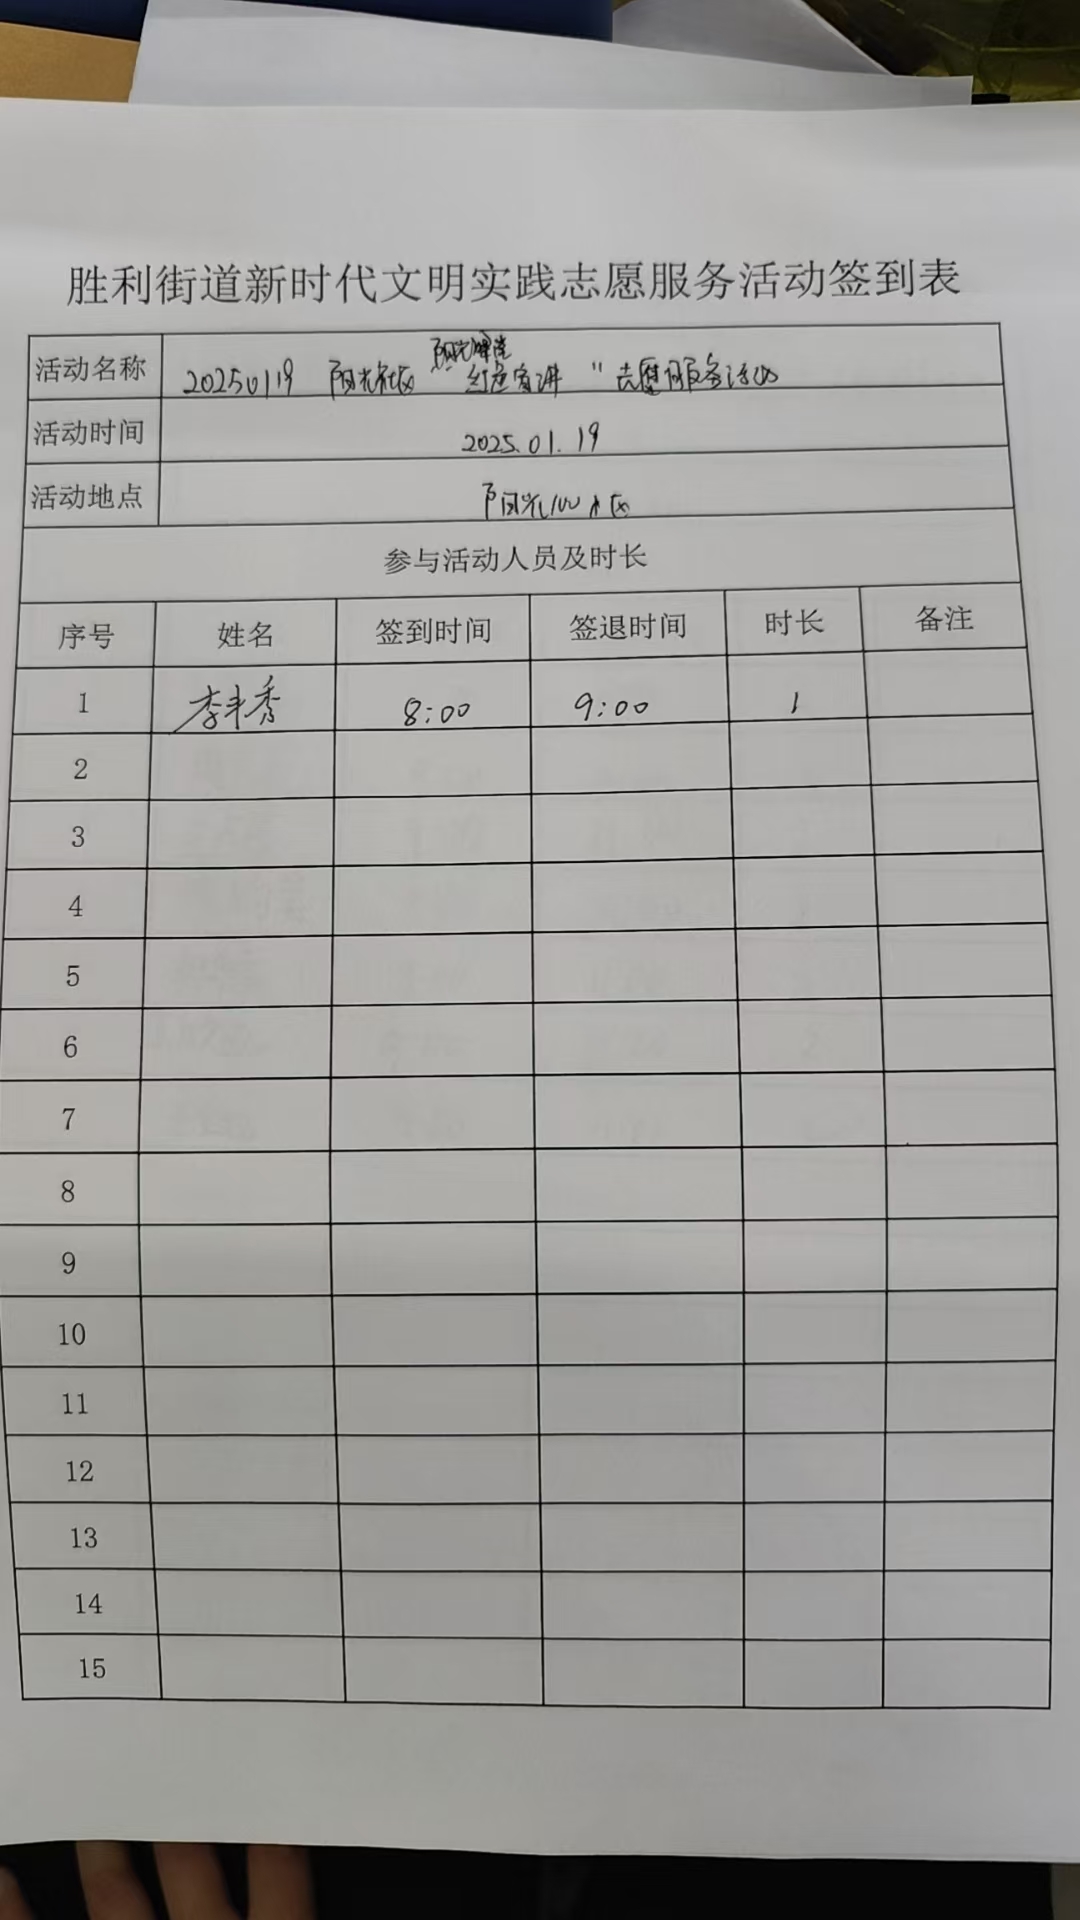 胜利街道新时代文明实践志愿服务活动签到表
阳光讲堂
活动名称 20250119 阳光社区 "红色宣讲" 志愿服务活动
活动时间 2025.01.19
活动地点 阳光100小区
参与活动人员及时长
序号 姓名 签到时间 签退时间 时长 备注
1 李丰秀 8:00 9:00 1
2
3
4
5
6
7
8
9
10
11
12
13
14
15